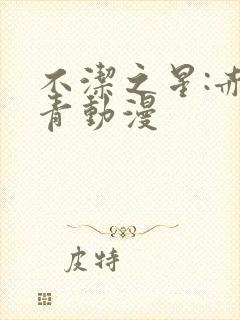 不潔之星:赤
青動漫
皮特